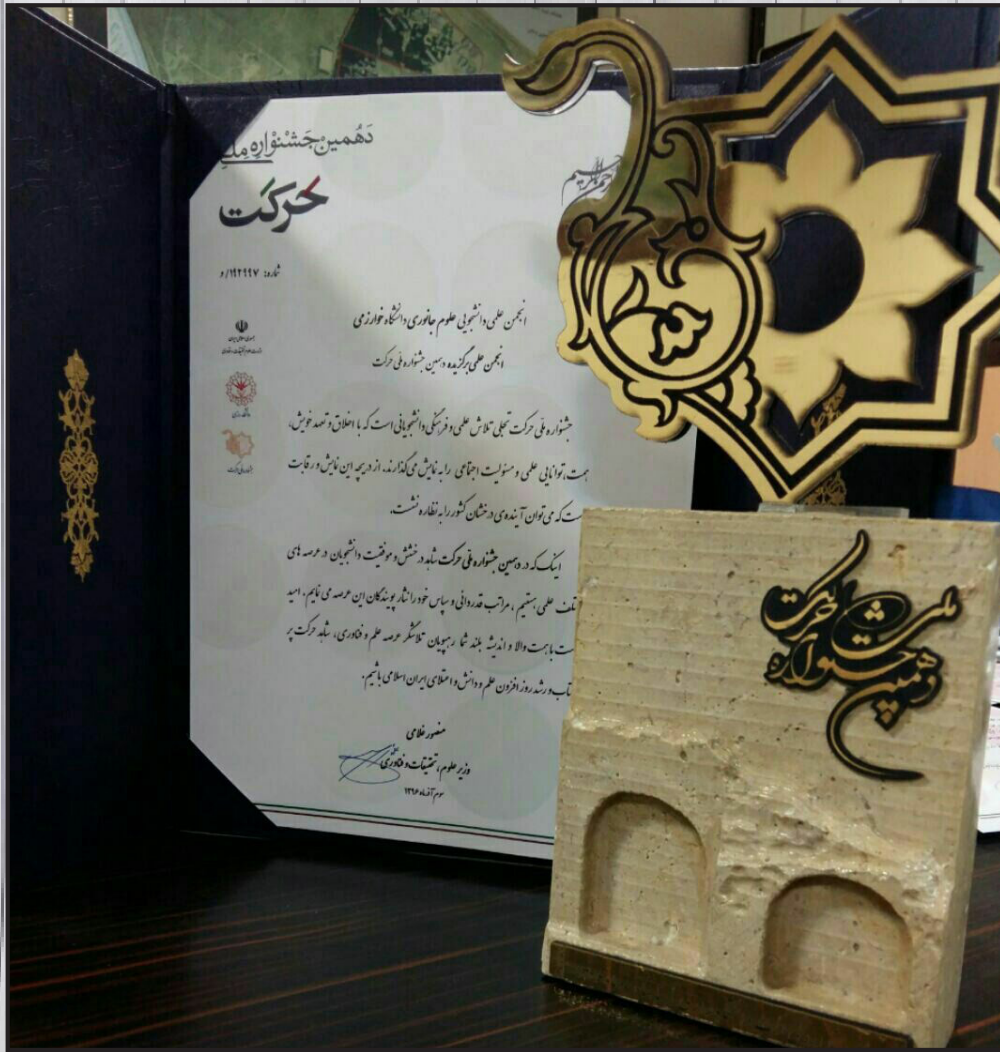 دَهُمین جَشنواره ملی
حرکت
شماره: ۱۹۲۹۹۷/و
جمهوری اسلامی ایران
انجمن علمی دانشجویی علوم جانوری دانشگاه خوارزمی
انجمن علمی برگزیده دهمین جشنواره ملی حرکت
جشنواره ملی حرکت تجلی تلاش علمی و فرهنگی دانشجویانی است که با اخلاق و تعهد خویش،
همت، توانایی علمی و مسئولیت اجتماعی را به نمایش می‌گذارند. از دریچه این نمایش و رقابت
ست که می‌توان آینده‌ی درخشان کشور را به نظاره نشست.
اینک که در دهمین جشنواره ملی حرکت شاهد درخشش و موفقیت دانشجویان در عرصه های
علمی هستیم، مراتب قدردانی و سپاس خود را نثار پویندگان این عرصه می نمایم. امید
ست با همت والا و اندیشه بلند شما رهپویان تلاشگر عرصه علم و فناوری، شاهد حرکت پر
و رشد روز افزون علم و دانش و اعتلای ایران اسلامی باشیم.
منصور غلامی
وزیر علوم، تحقیقات و فناوری
سوم آذرماه ۱۳۹۶
دهمین جشنواره ملی حرکت